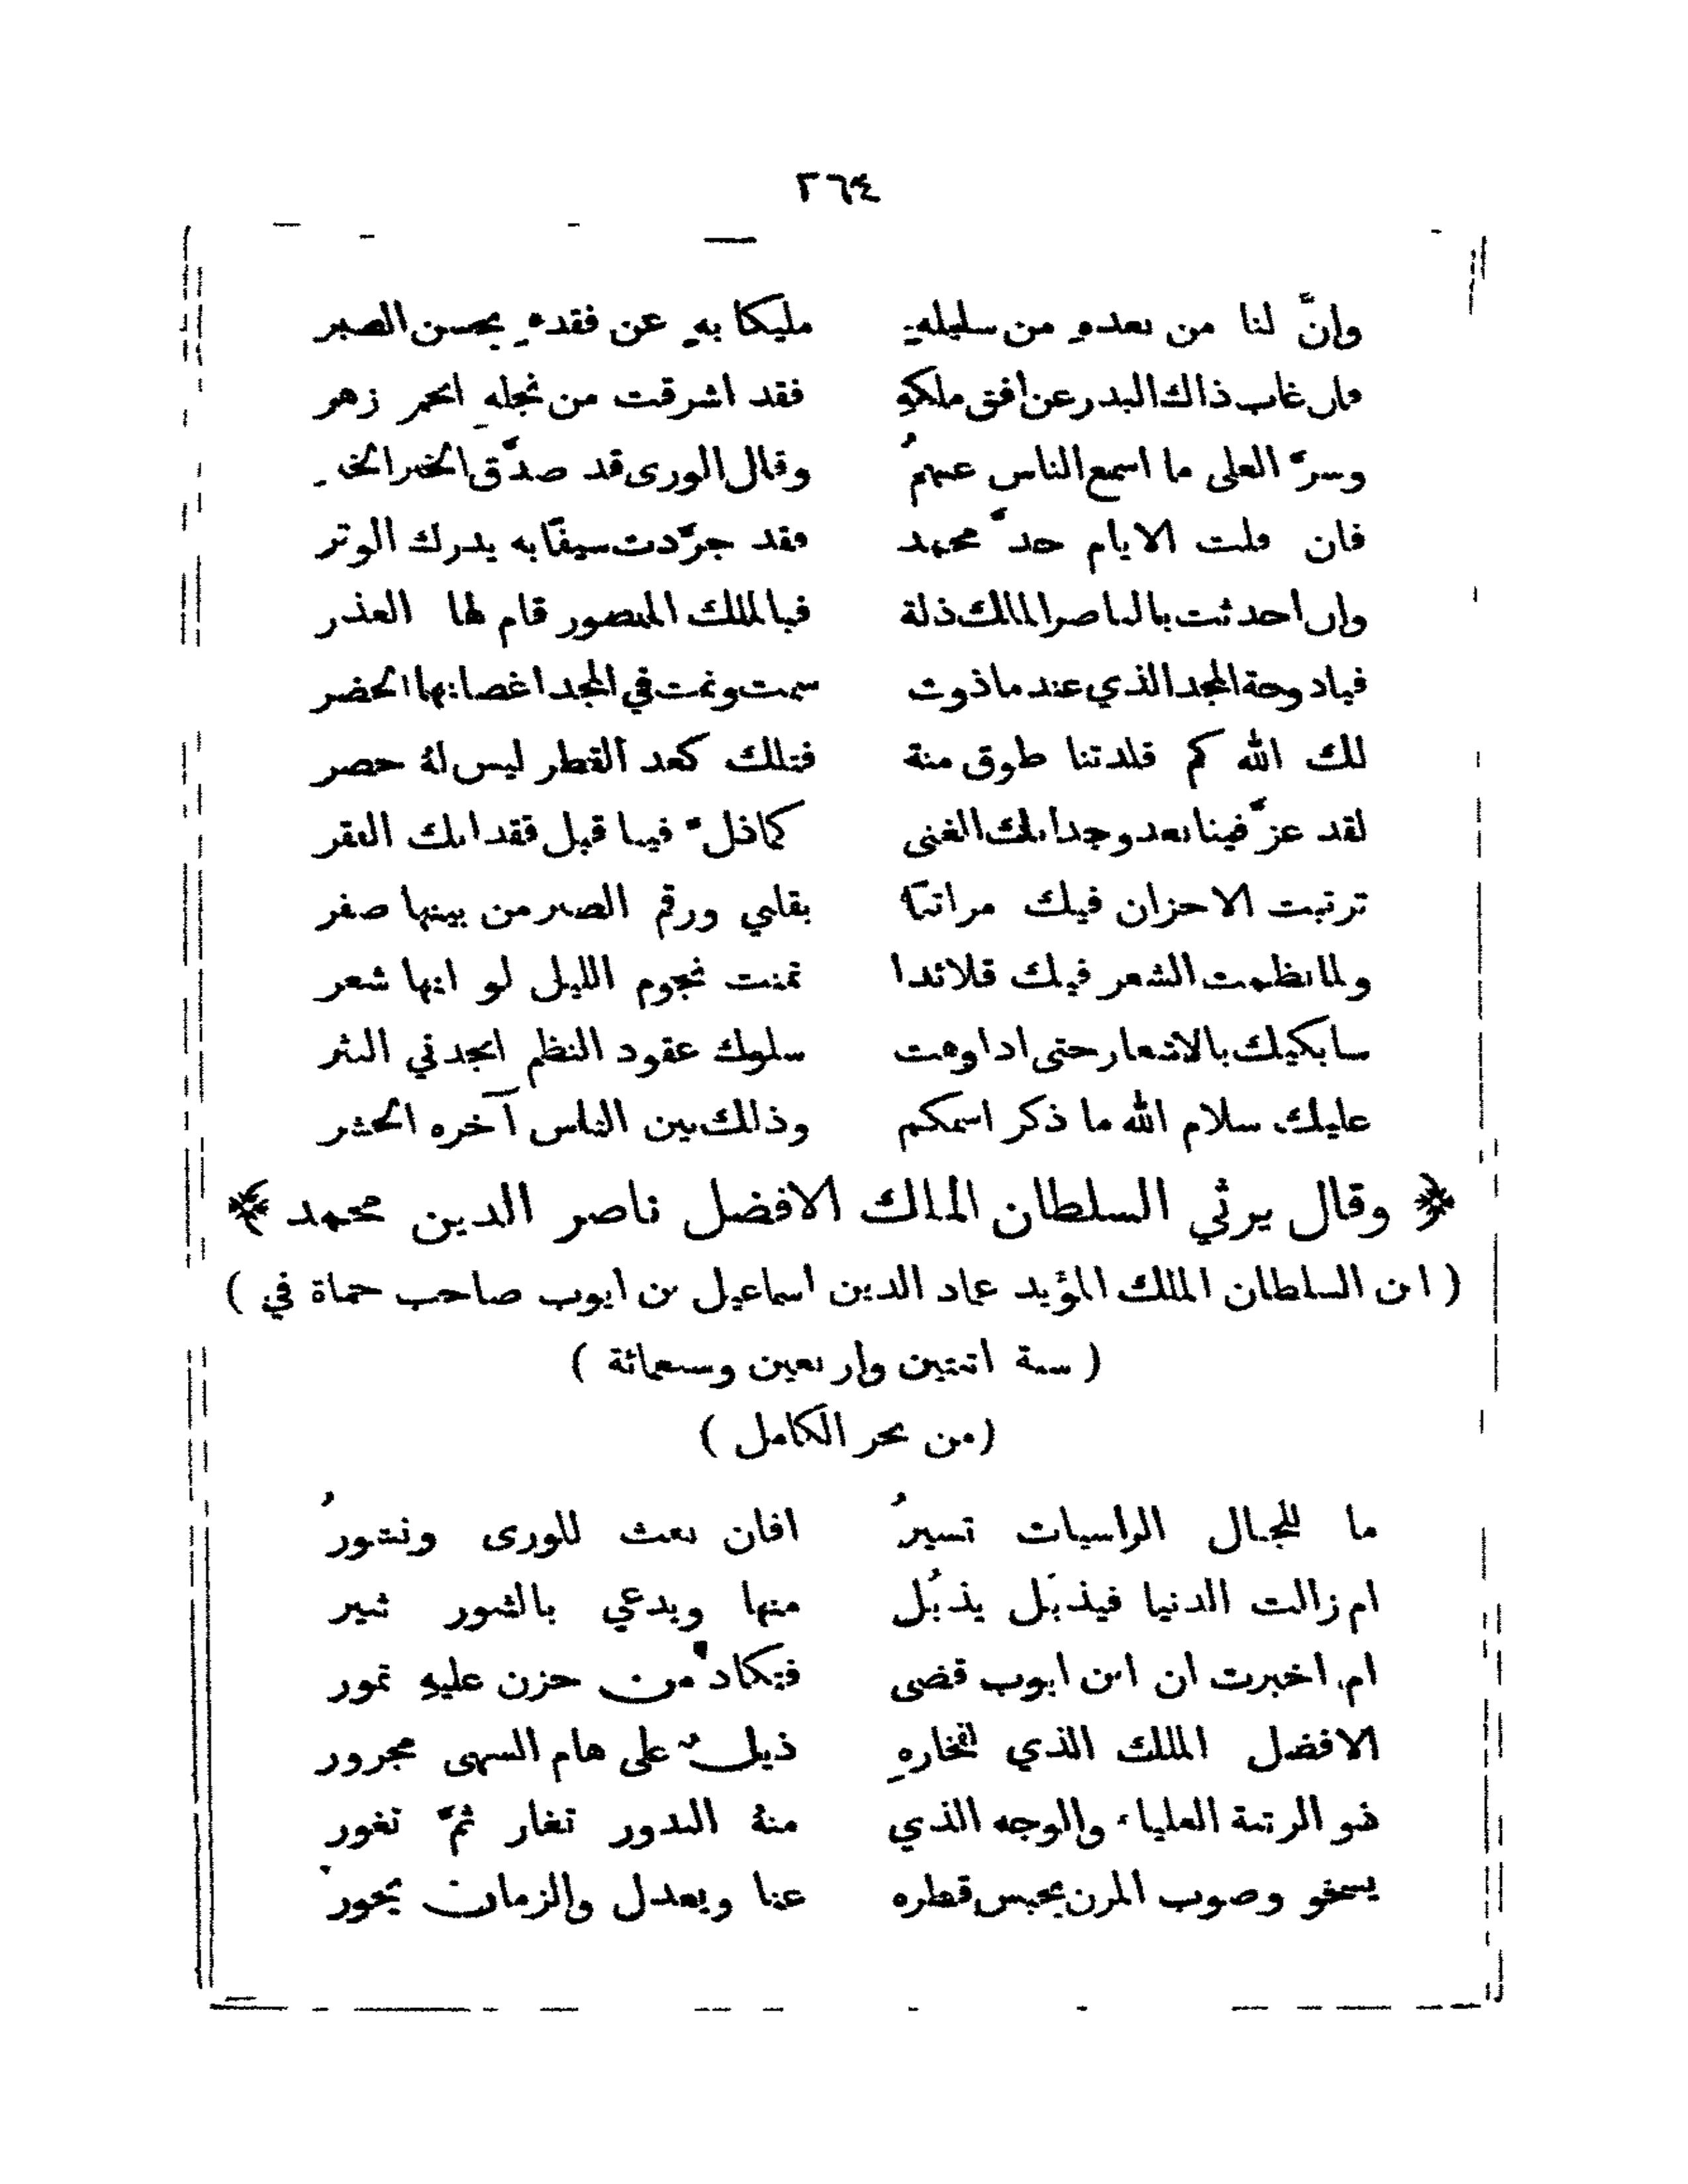 ٢٦٤
وإنَّ لنا من بعدهِ من سليلهِ مليكا بهِ عن فقدهِ يحسن الصبر
فان غاب ذاك البدر عن افق ملكهِ فقد اشرقت من نجلهِ انجم زهر
وسرَّ العلى ما اسمع الناس عنهمُ وقال الورى قد صدَّق الخبر الخبر
فان فلت الايام حدَّ محمد فقد جرَّدت سيفًا به يدرك الوتر
وان احدثت بالناصر الملك ذلة فبالملك المنصور قام لها العذر
فيا دوحة المجد الذي عند ما ذوت سمت ونمت في المجد اغصانها الخضر
لك الله كم قلدتنا طوق منة فتلك كعد القطر ليس لهُ حصر
لقد عزَّ فينا بعد وجدانك الغنى كما ذلَّ فيما قبل فقدانك الفقر
ترتبت الاحزان فيك مراتبًا بقلبي ورقم الصبر من بينها صفر
ولما نظمت الشعر فيك قلائدا تمنت نجوم الليل لو انها شعر
سابكيك بالاشعار حتى اذا وهت سلوك عقود النظم انجدني النثر
عليك سلام الله ما ذكر اسمكم وذلك بين الناس آخره الحشر
﴿ وقال يرثي السلطان الملك الافضل ناصر الدين محمد ﴾
( ابن السلطان الملك المؤيد عماد الدين اسماعيل بن ايوب صاحب حماة في )
( سنة اثنتين واربعين وسبعمائة )
(من بحر الكامل )
ما للجبال الراسيات تسيرُ افان بعث للورى ونشورُ
ام زالت الدنيا فيذبَل يذبُل منها ويدعي بالثبور ثبير
ام اخبرت ان ابن ايوب قضى فتكاد من حزن عليهِ تمور
الافضل الملك الذي لفخارهِ ذيلٌ على هام السهى مجرور
ذو الرتبة العلياء والوجه الذي منهُ البدور تغار ثمَّ تغور
يسخو وصوب المزن يحبس قطره عنا ويعدل والزمان يجور